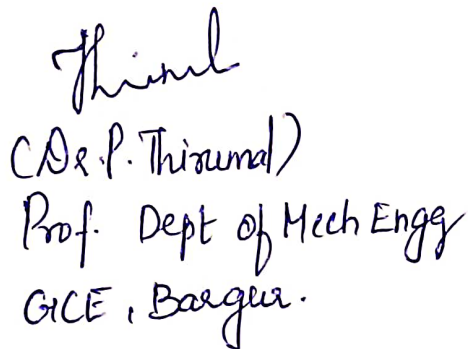 Thirumal
(Dr. P. Thirumal)
Prof. Dept of Mech Engg
GCE, Bargur.